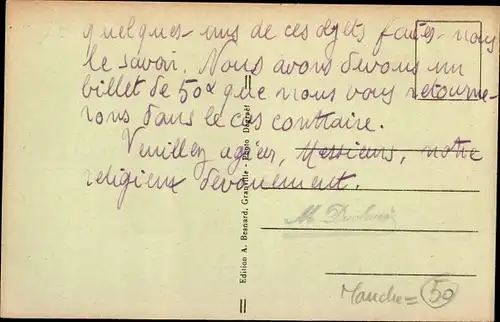 quelques-uns de ces objets faites-nous
le savoir. Nous avons devons un
billet de 50 que nous vous retourne-
rons dans le cas contraire.
Veuillez agréer, Messieurs, notre
religieux dévouement.
Edition A. Besnard, Granville - Photo
Manche = 50